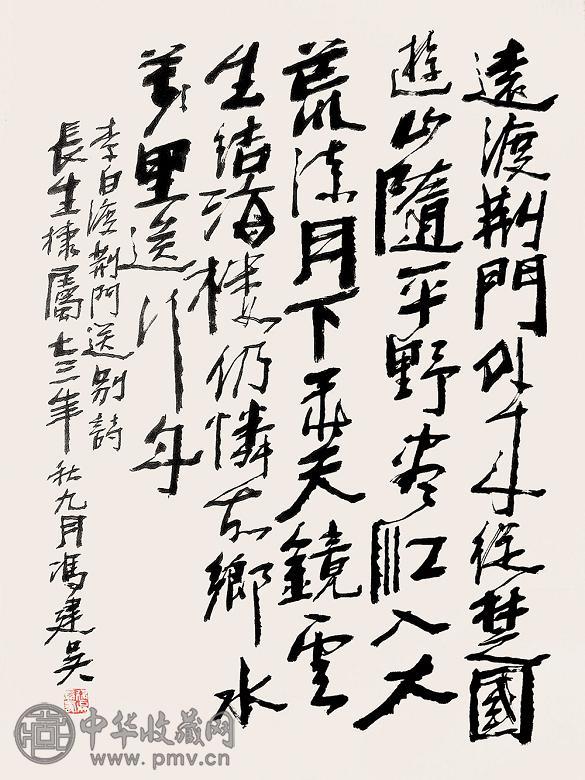 遠渡荆門外來從楚國
遊山隨平野盡江入大
荒流月下飛天鏡雲
生結海樓仍憐故鄉水
萬里送行舟
李白渡荆門送别詩
長生棣屬七三年秋九月馮建吴
中华收藏网
www.pmv.cn